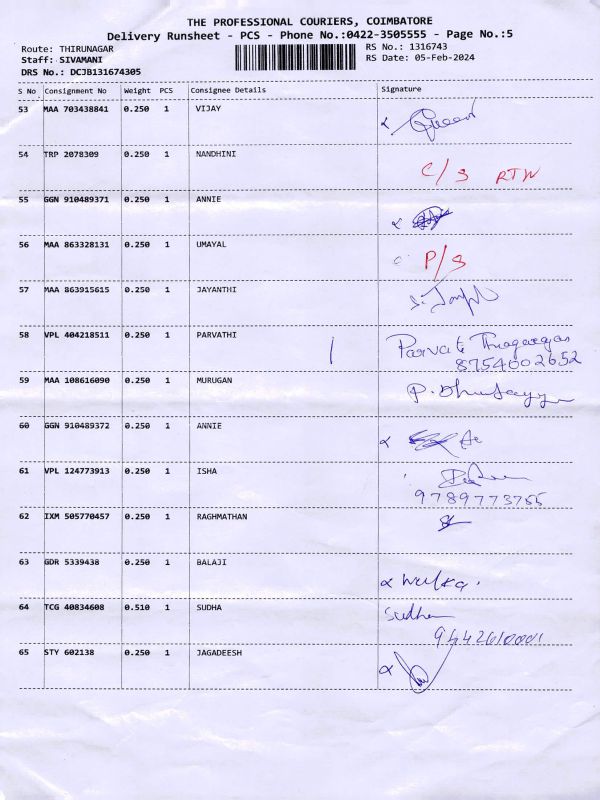 THE PROFESSIONAL COURIERS, COIMBATORE
Delivery Runsheet - PCS - Phone No.:0422-3505555 - Page No.:5
Route: THIRUNAGAR RS No.: 1316743
Staff: SIVAMANI RS Date: 05-Feb-2024
DRS No.: DCJB131674305
S No Consignment No Weight PCS Consignee Details Signature
53 MAA 703438841 0.250 1 VIJAY
54 TRP 2078309 0.250 1 NANDHINI
C/S RTN
55 GGN 910489371 0.250 1 ANNIE
56 MAA 863328131 0.250 1 UMAYAL
P/S
57 MAA 863915615 0.250 1 JAYANTHI
58 VPL 404218511 0.250 1 PARVATHI
8754002652
59 MAA 108616090 0.250 1 MURUGAN
60 GGN 910489372 0.250 1 ANNIE
61 VPL 124773913 0.250 1 ISHA
9789773755
62 IXM 505770457 0.250 1 RAGHMATHAN
63 GDR 5339438 0.250 1 BALAJI
64 TCG 40834608 0.510 1 SUDHA
Sudha
9442610001
65 STY 602138 0.250 1 JAGADEESH